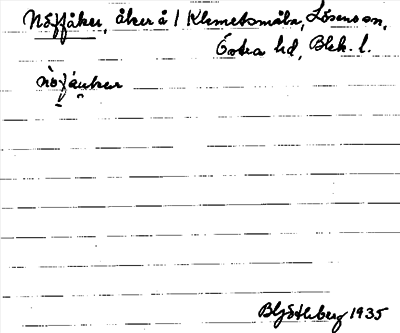 Nöjjåker, åker å 1 Klemetsmåla, Lösens sn,
Östra hd, Blek. l.
Blj Stenberg 1935